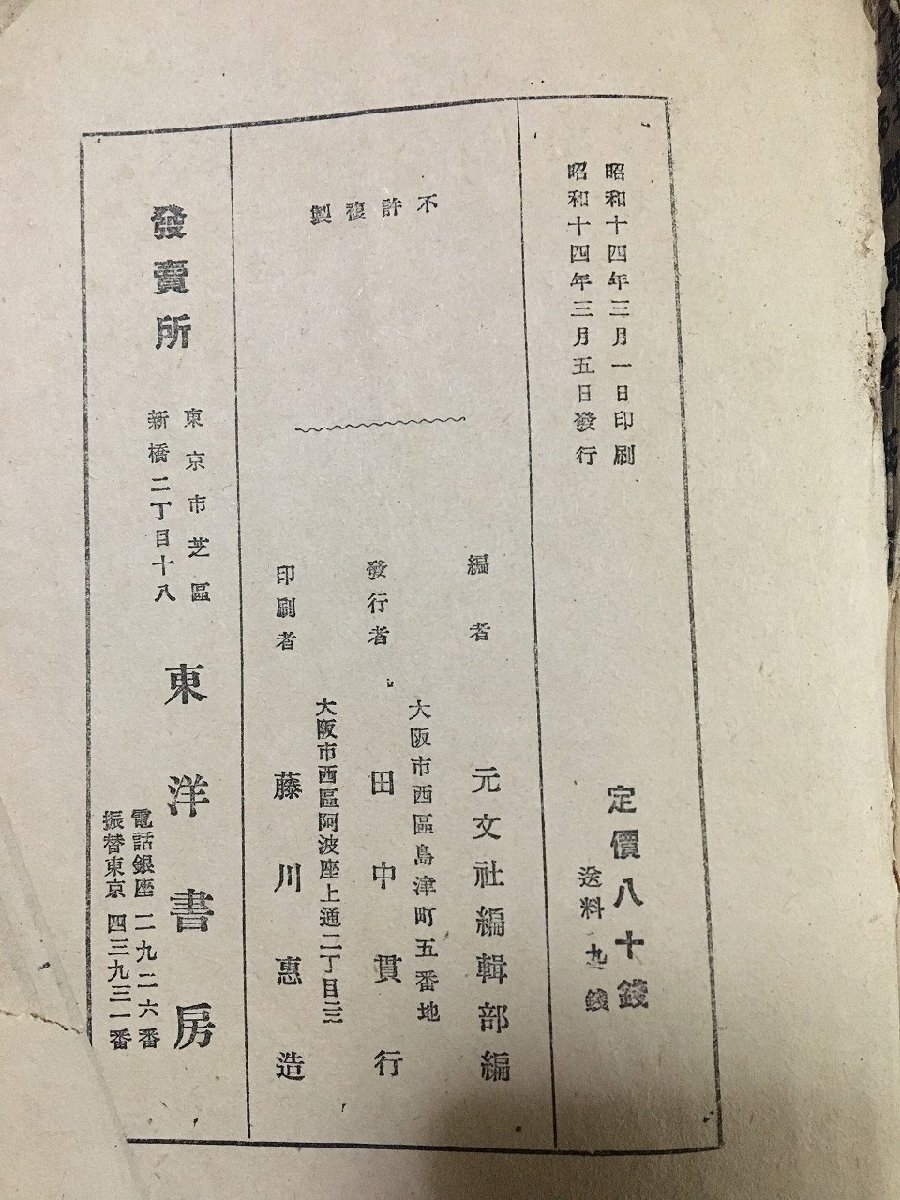 昭和十四年三月一日印刷
昭和十四年三月五日發行
定價八十錢
送料九錢
不許複製
編者
元文社編輯部編
大阪市西區島津町五番地
發行者
田中貫行
大阪市西區阿波座上通二丁目三三
印刷者
藤川惠造
發賣所
東京市芝區
新橋二丁目十八
東洋書房
電話銀座二九二六番
振替東京四三九三一番